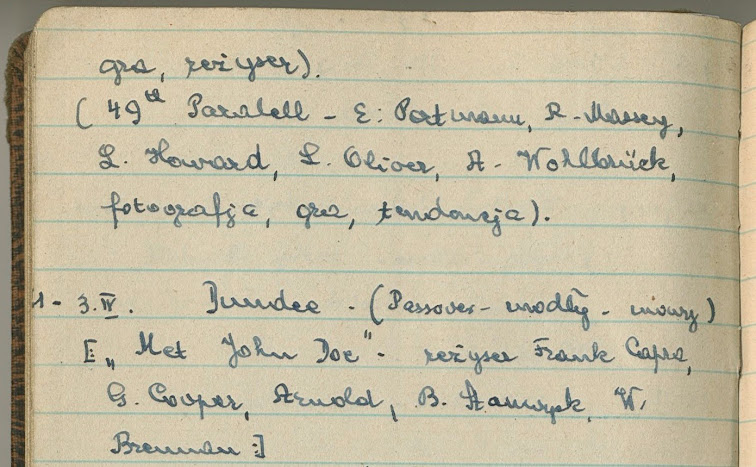 gra, reżyser).
( 49th Paralell - E: Portmann, R. Massey,
L. Howard, L. Oliver, A. Wohlbrück,
fotografja, gra, tendencja).
1 - 3.IV. Dundee - (Passover - modły -
[ „Met John Doe" - reżyser Frank Capra,
G. Cooper, Arnold, B. Stanwyck, W.
Brennan :]